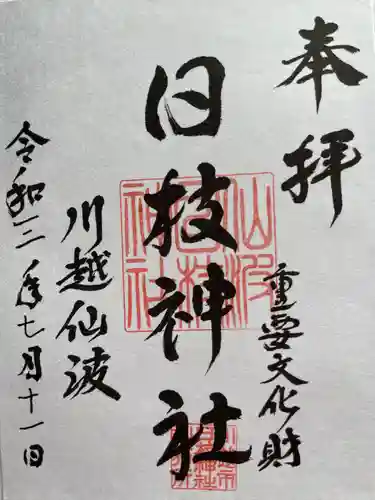 奉拝
重要文化財
日枝神社
川越仙波
令和三年七月十一日